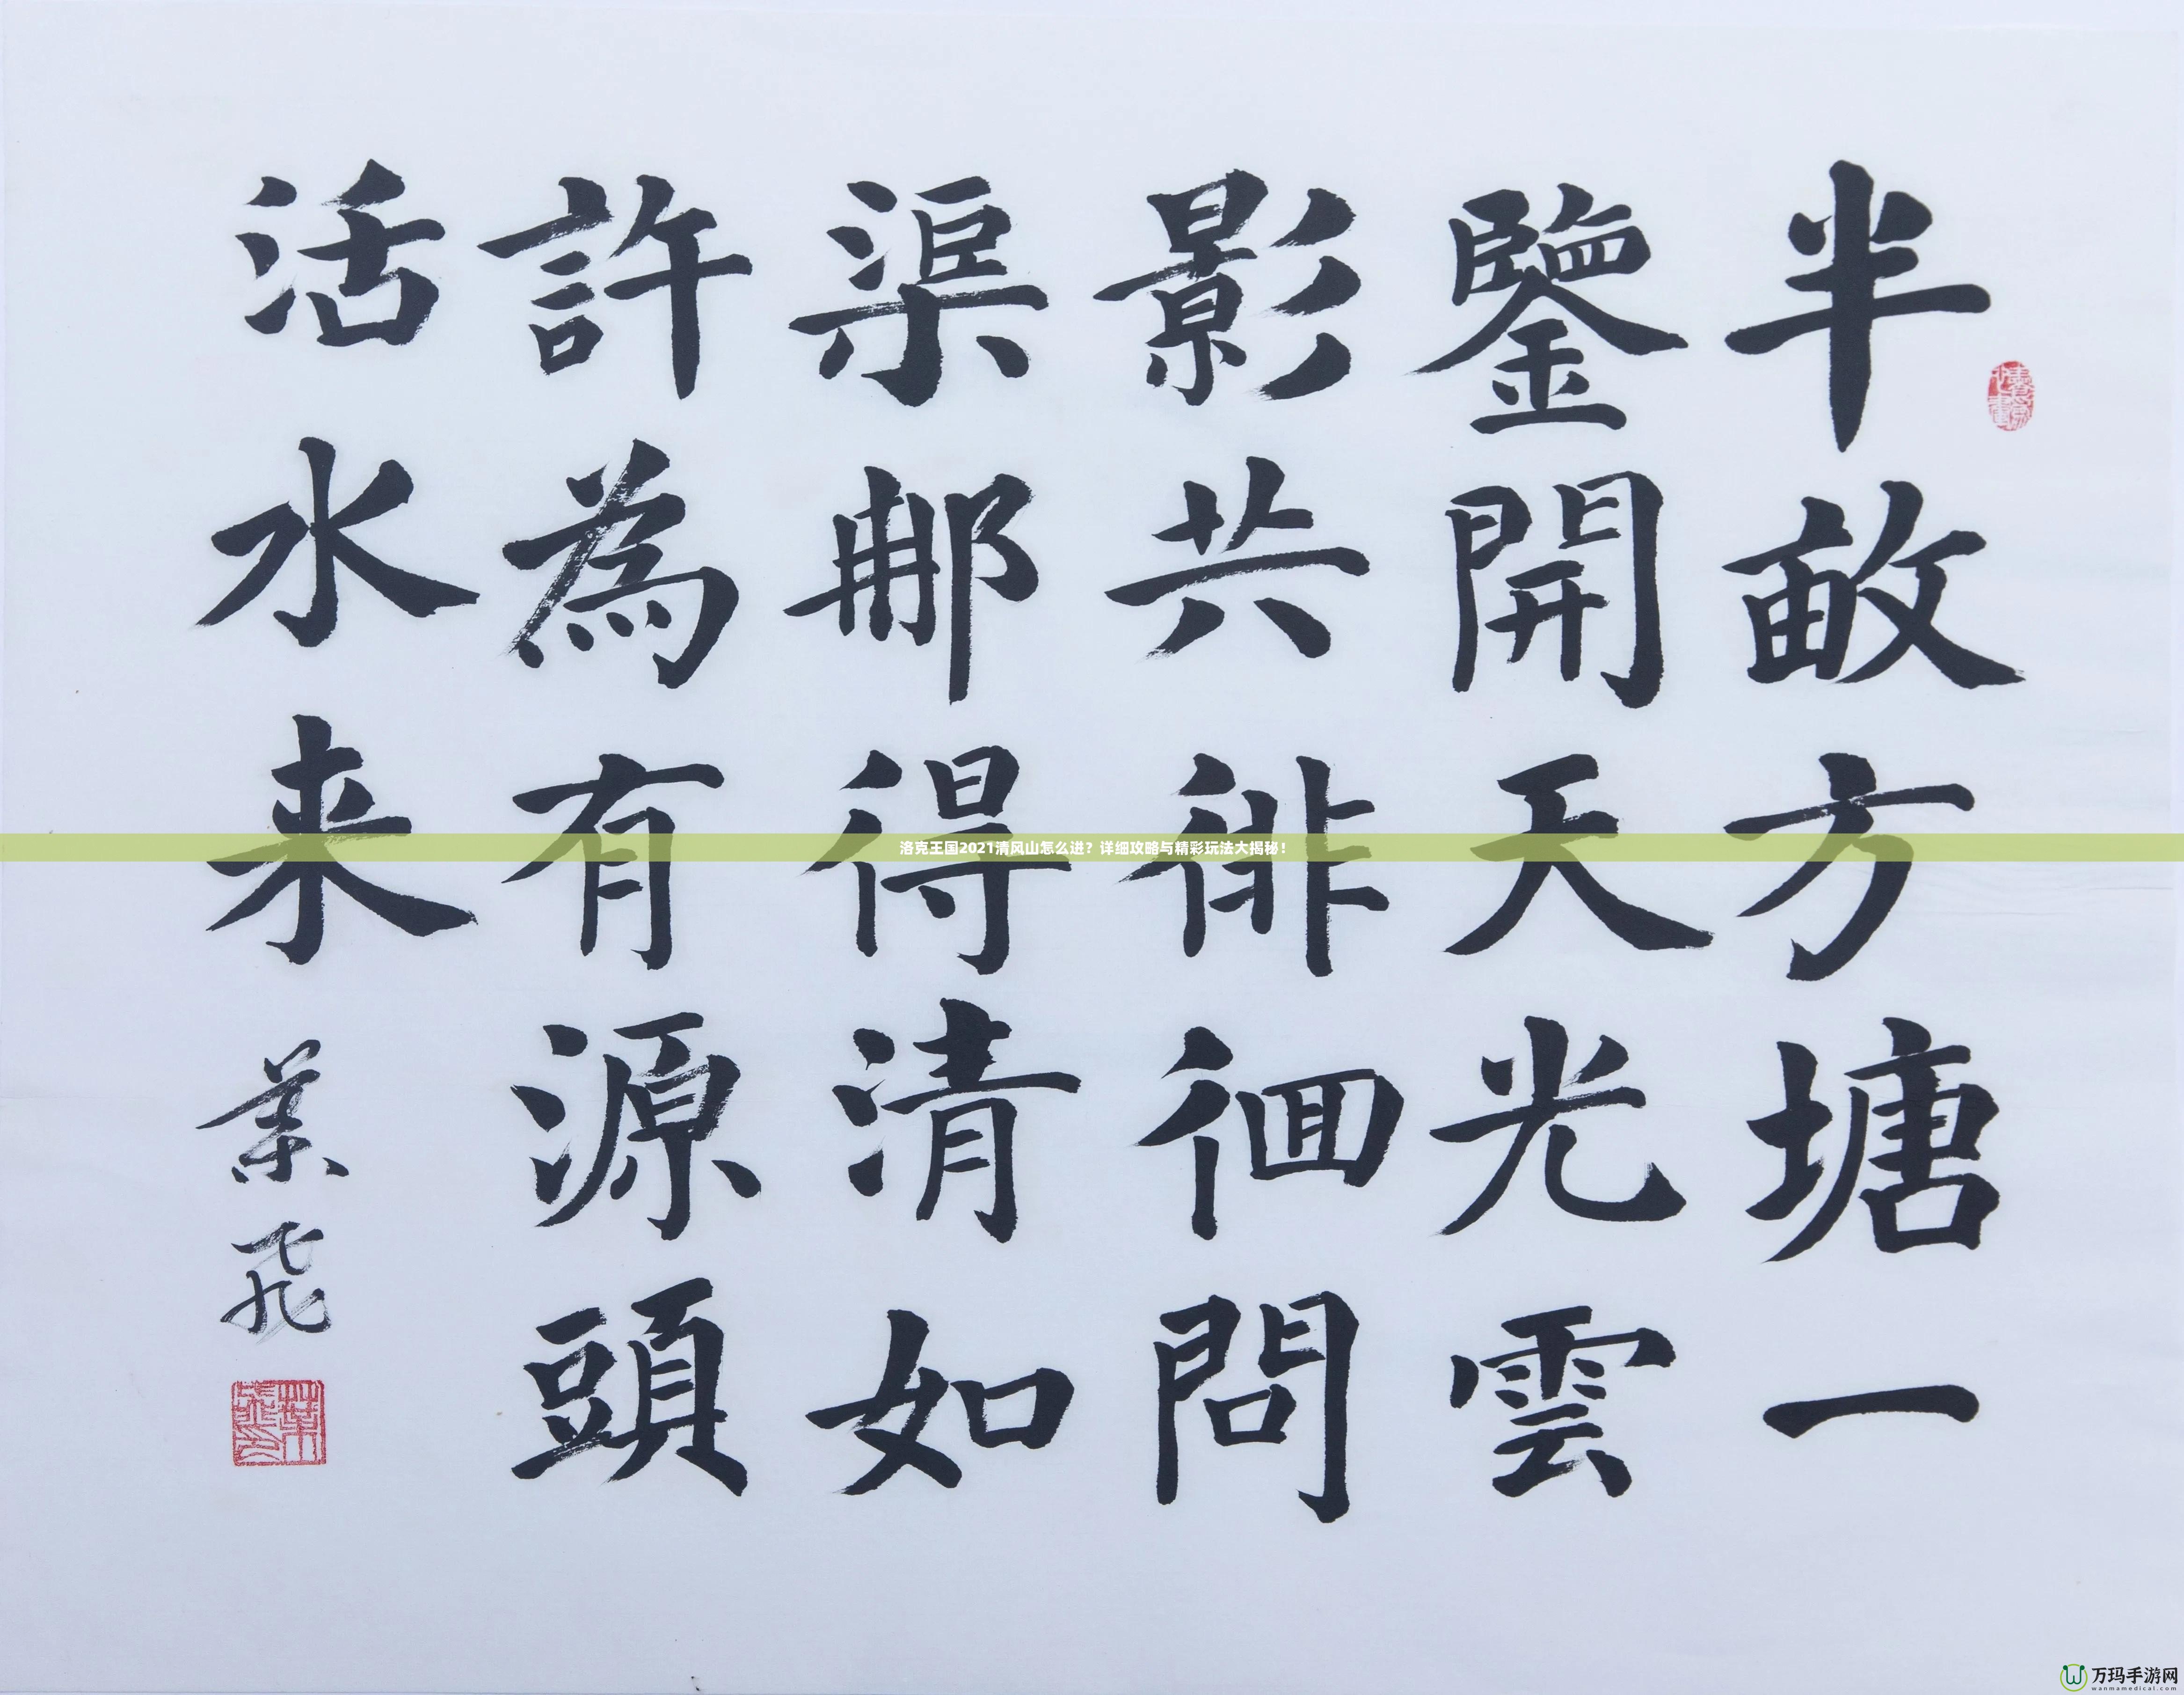 半畝方塘一
鑒開天光雲
影共徘徊問
渠那得清如
許為有源頭
活水来
葉飛
洛克王国2021清风山怎么进？详细攻略与精彩玩法大揭秘！
万玛手游网
wanmamedical.com